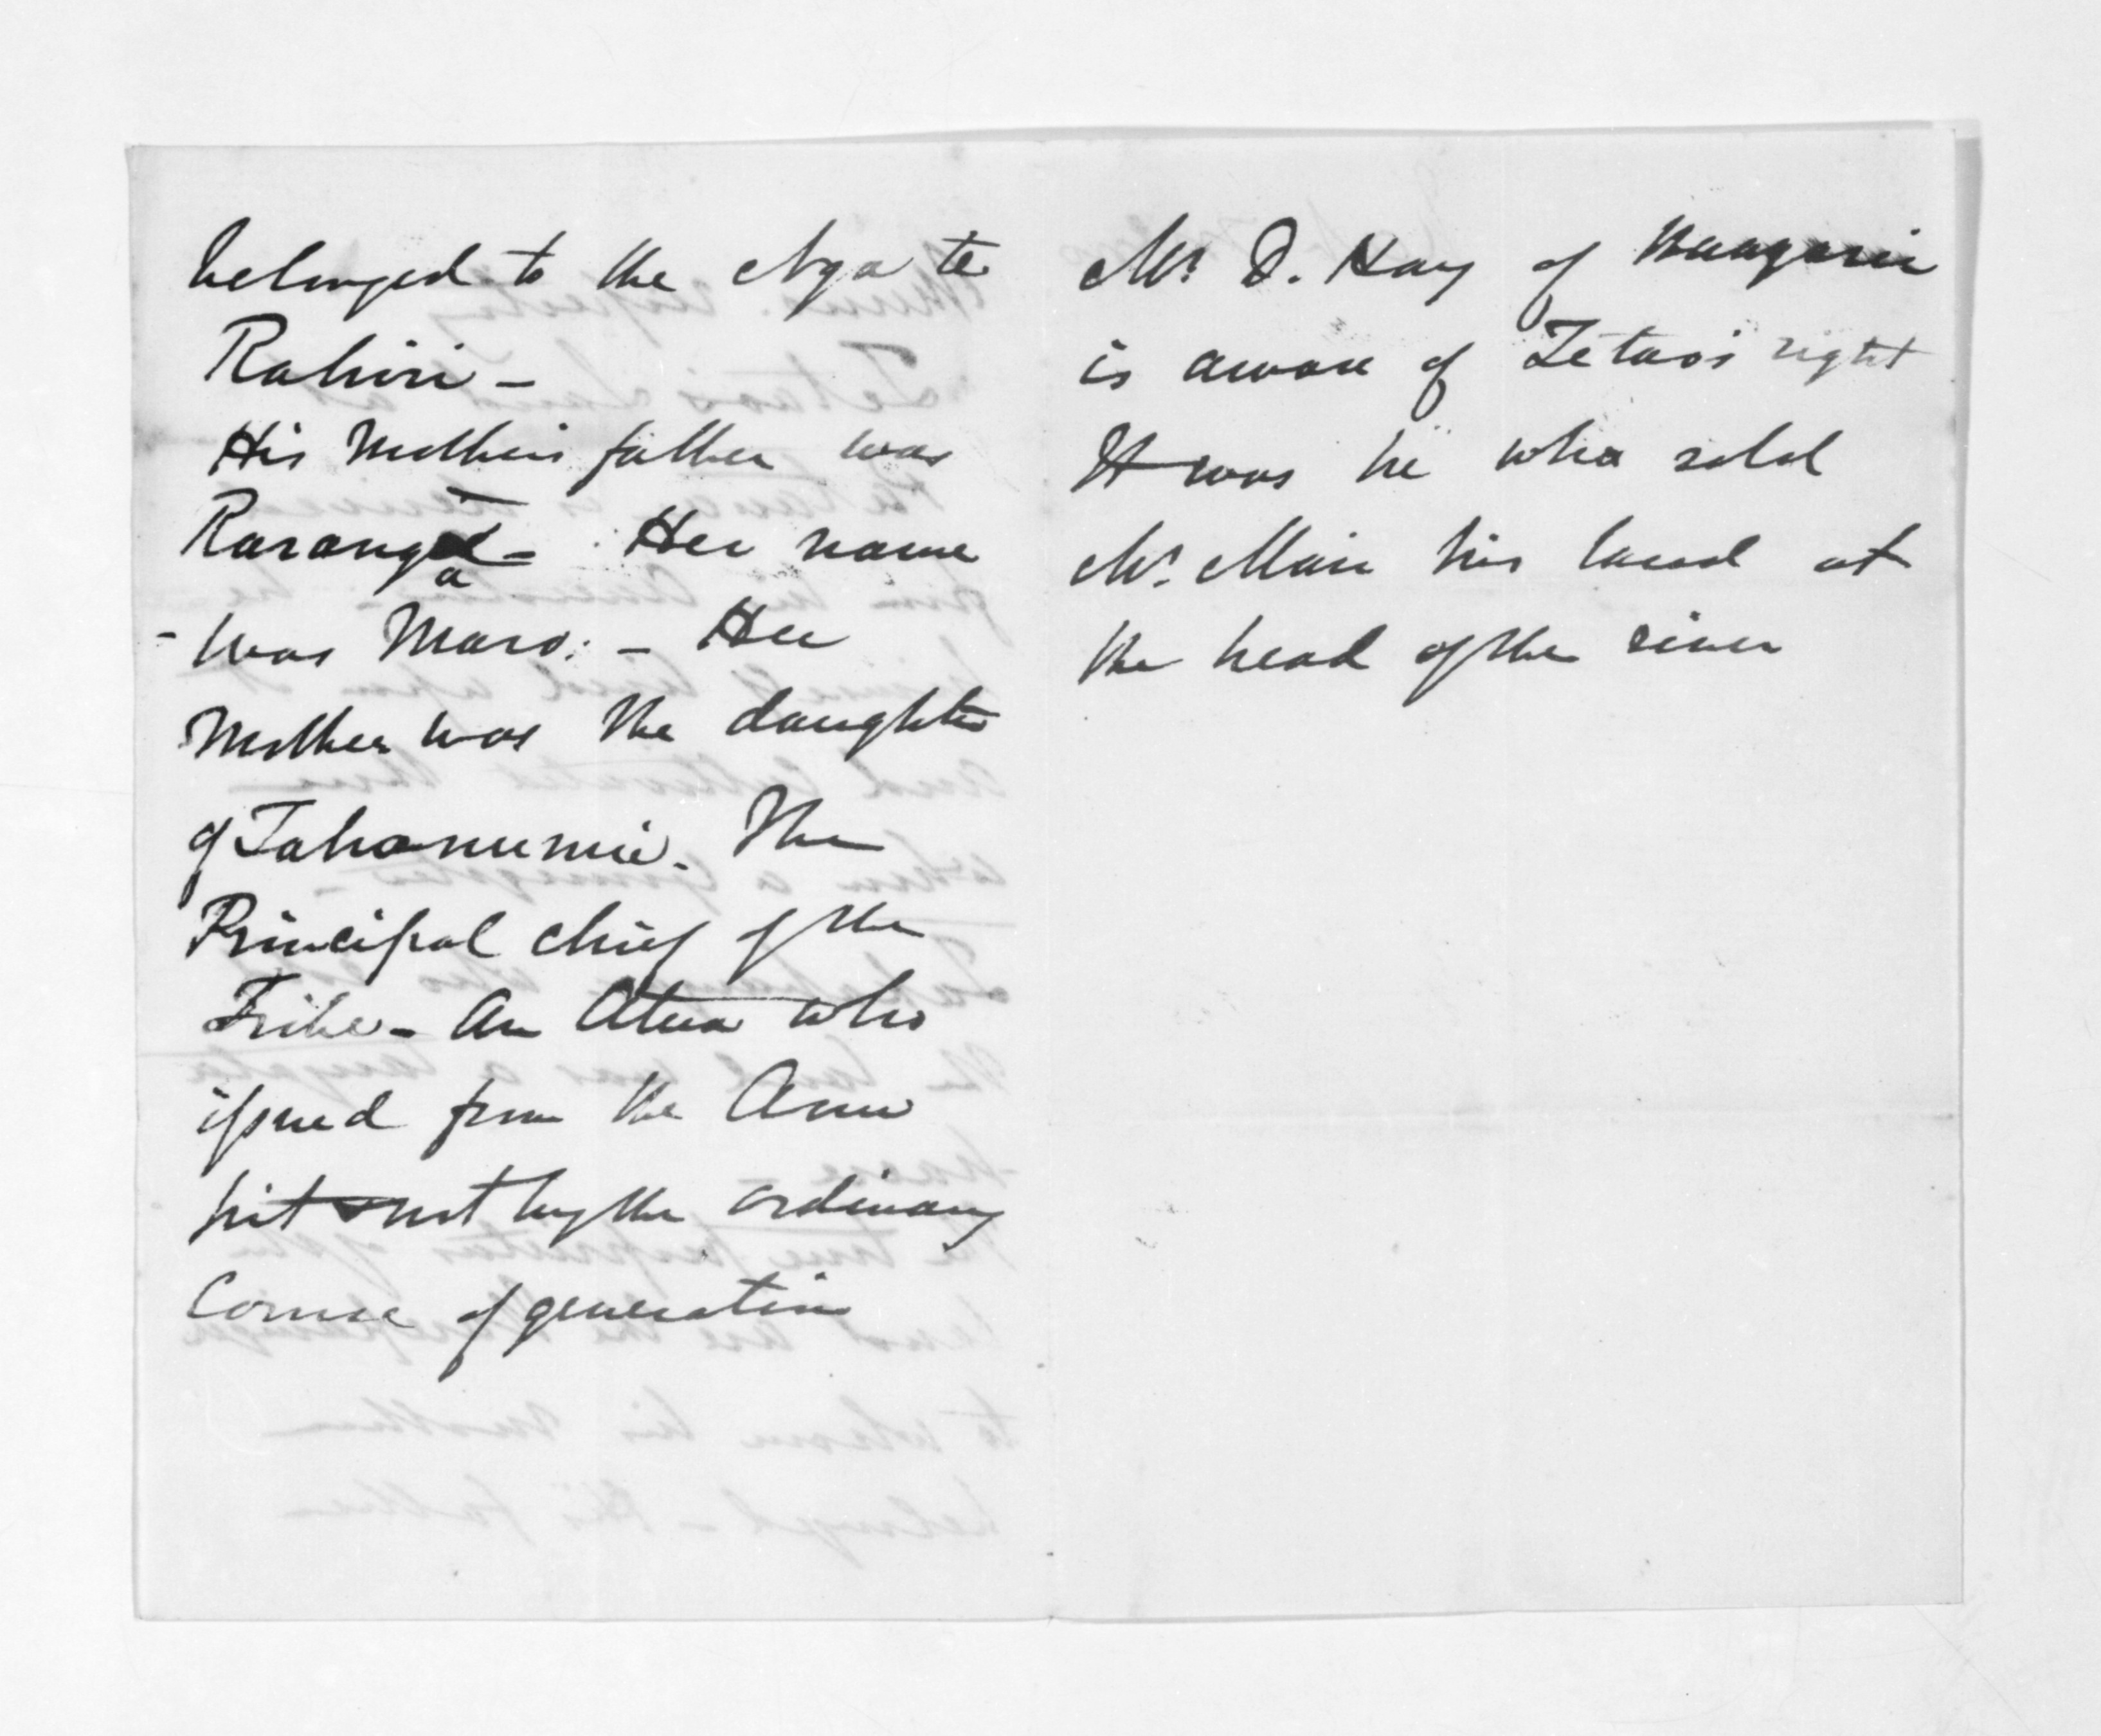 belonged to the Nga te
Rahiri -
His Mothers father was
Raranga - Her name
- was Maro: - Her
Mother was the daughter
of Tahanumia. The
Principal chief of the
Tribe - An Atua who
issued from the Arm
pit not by the ordinary
Course of generation
Mr D. Hay of
is aware of Te taos right
It was he who sold
Mr. Mair his land at
the head of the river